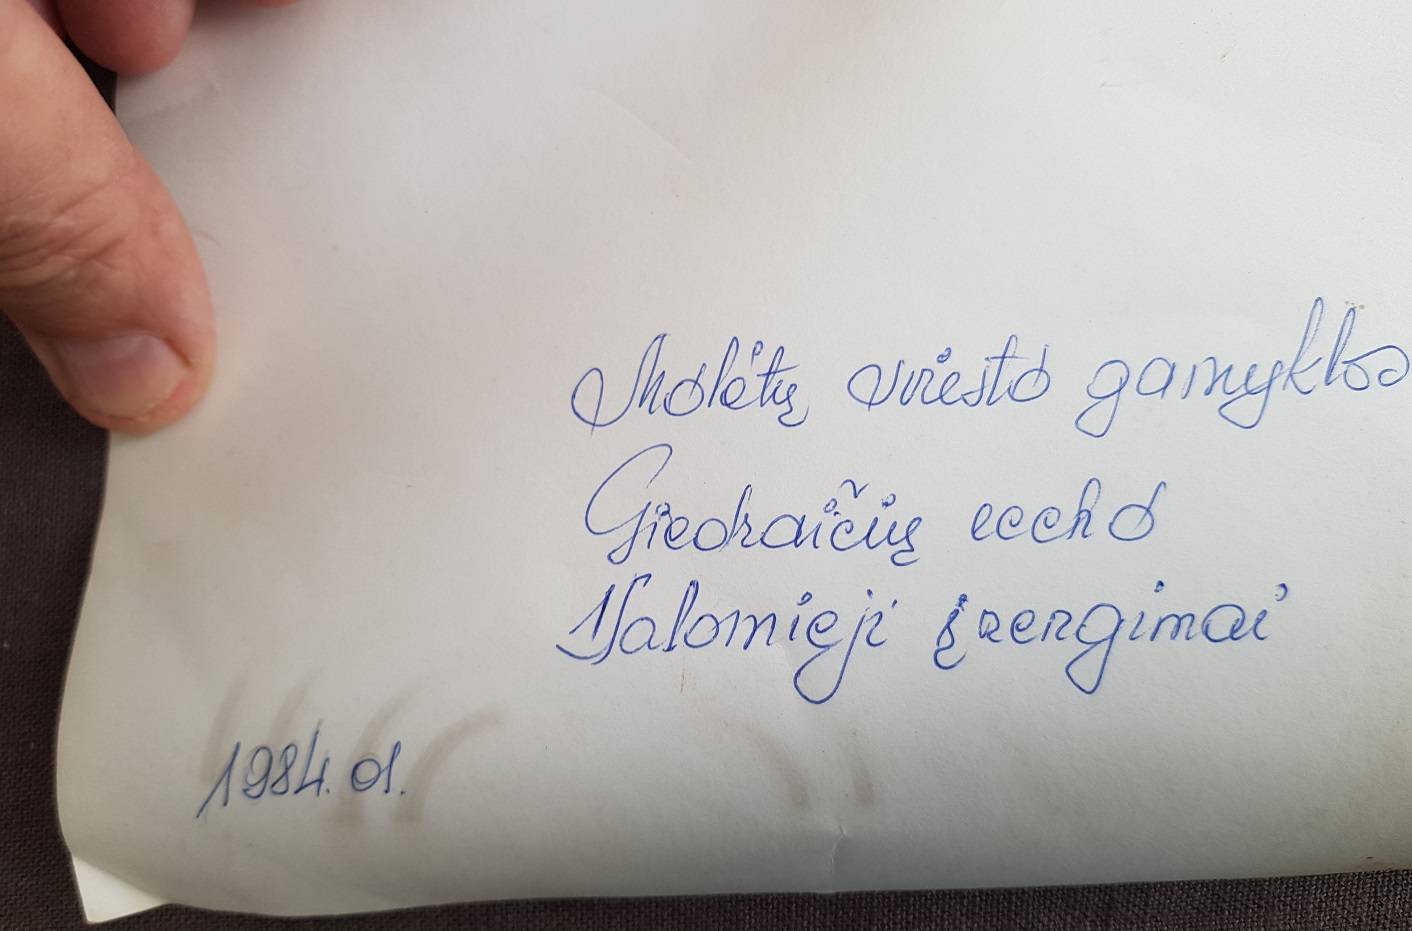 Molėtų sviesto gamyklos
Giedraičių cecho
Valomieji įrengimai
1984.01.